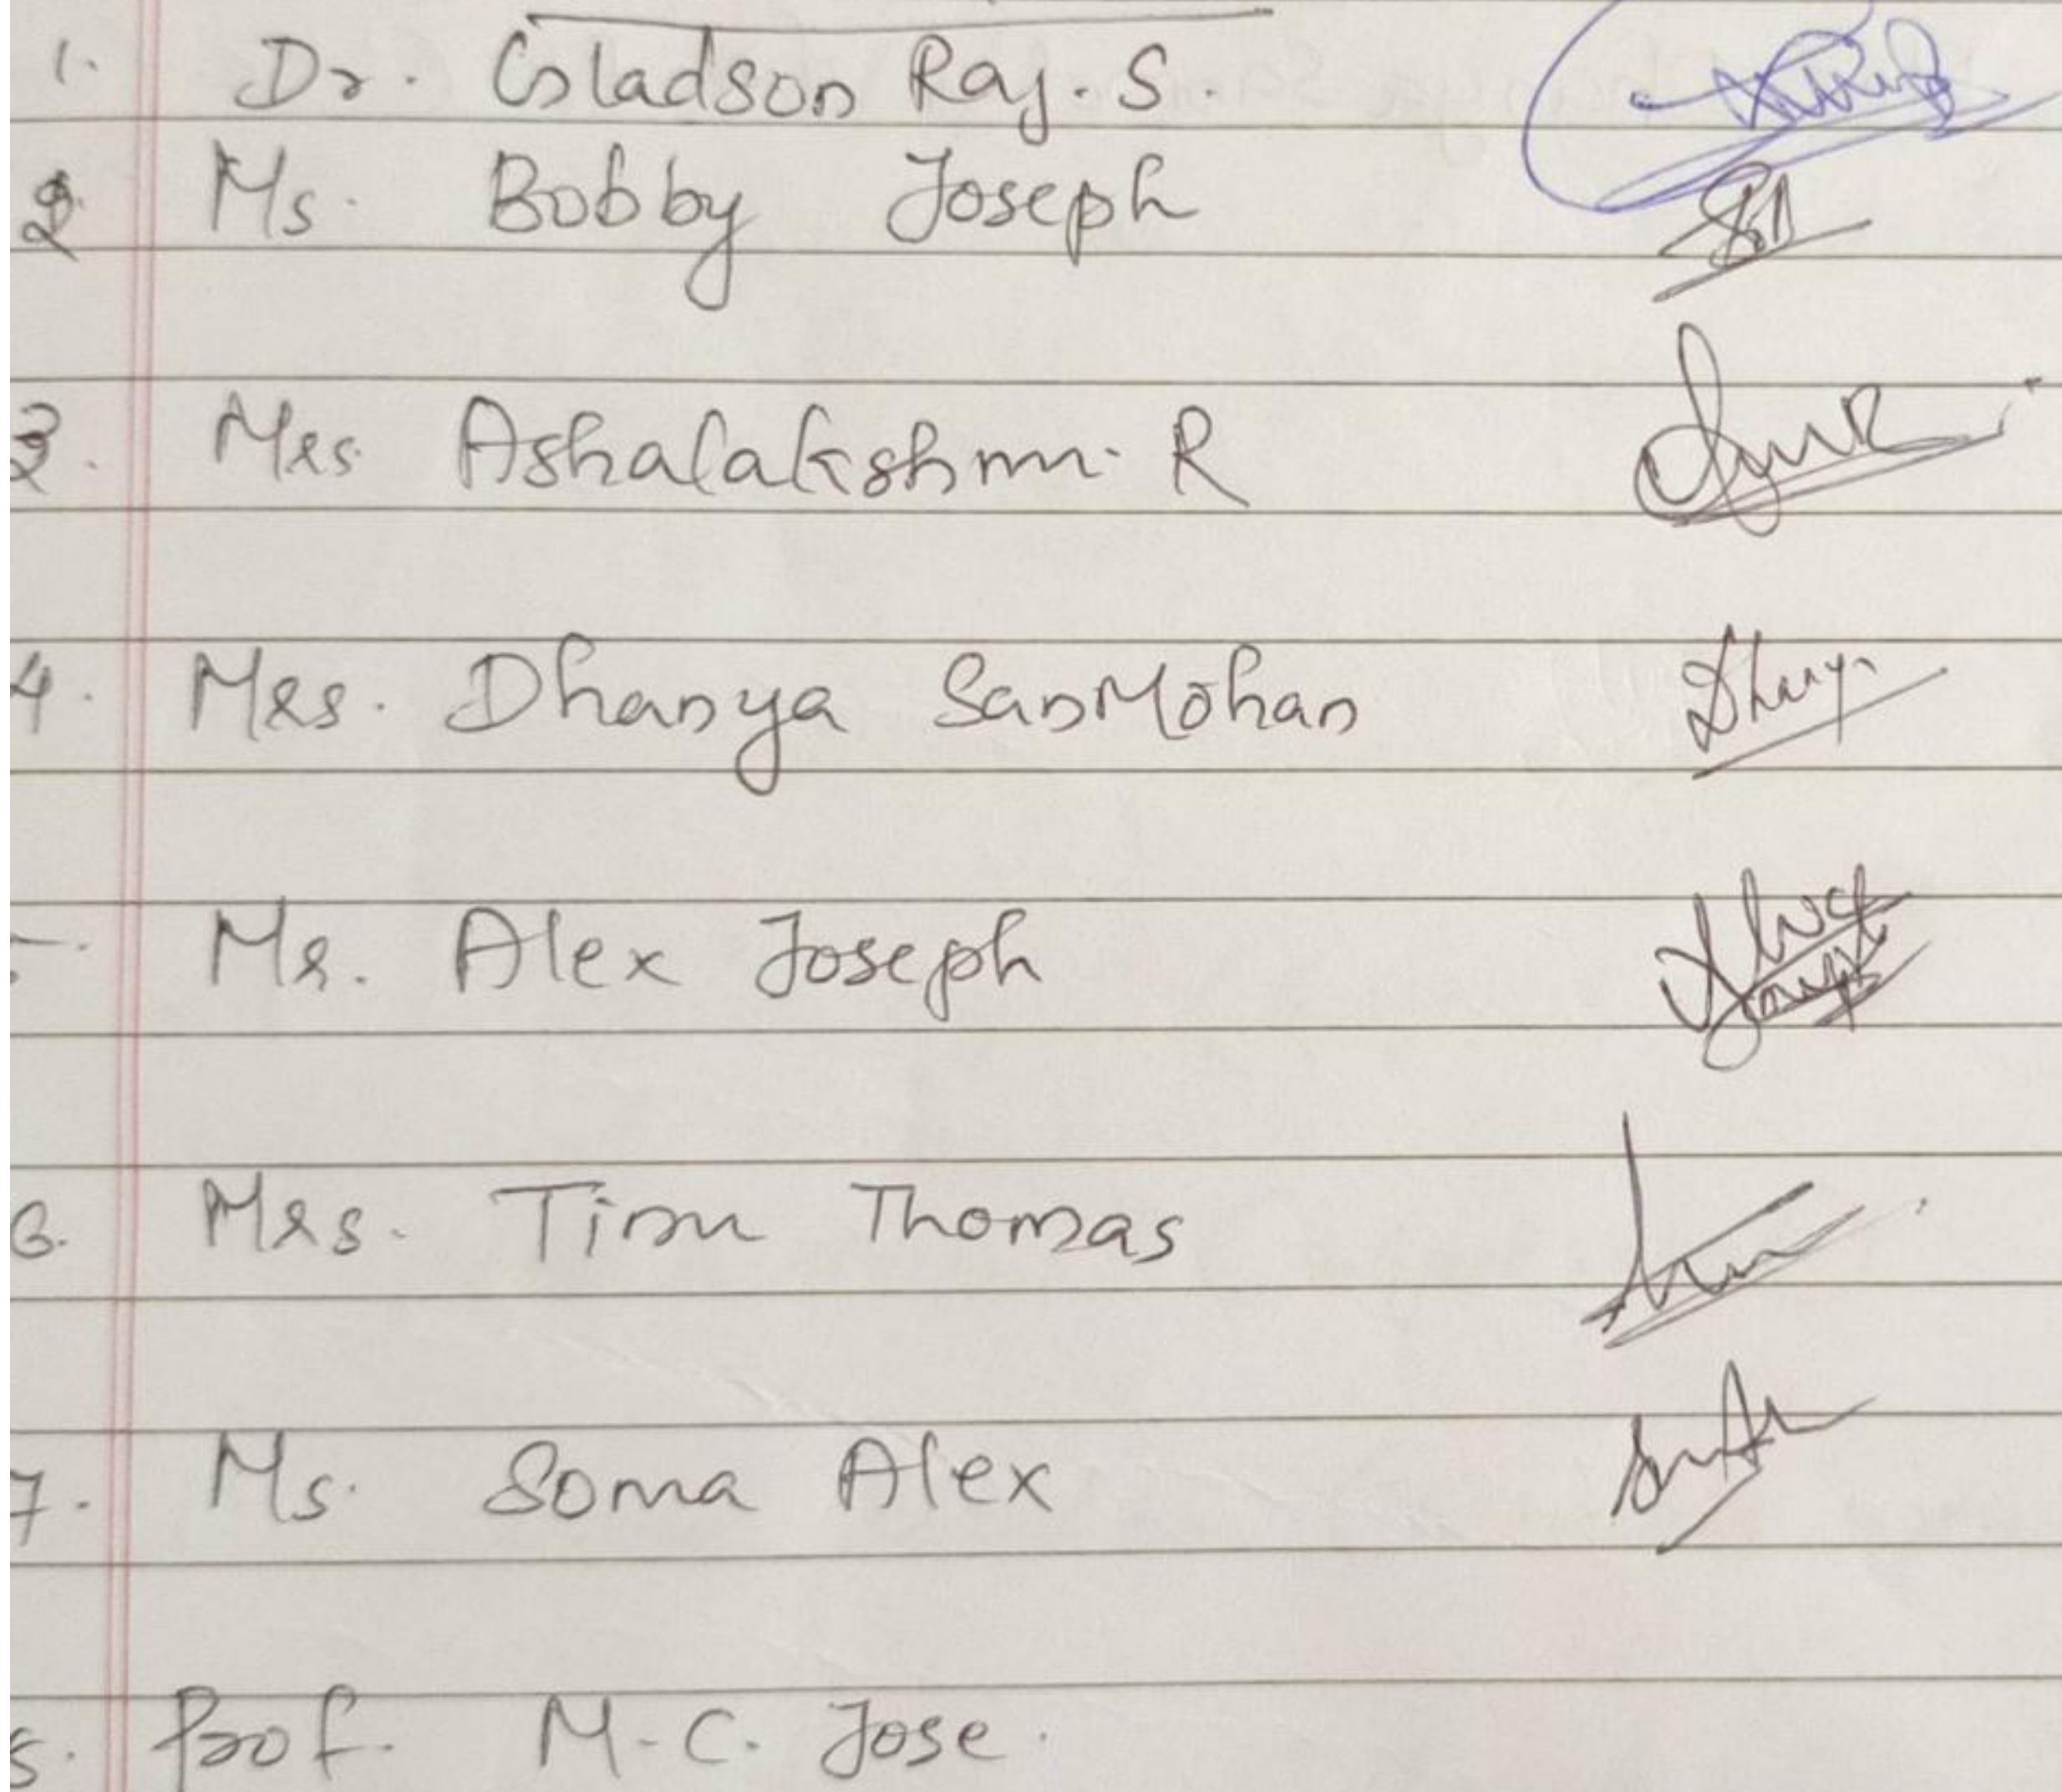 1. Dr. Gladson Raj. S.
2. Ms. Bobby Joseph
3. Mrs Ashalakshmi. R
4. Mrs. Dhanya SanMohan Dhanya
Mr. Alex Joseph
6. Mrs. Tinu Thomas
7. Ms. Soma Alex
Prof. M. C. Jose.